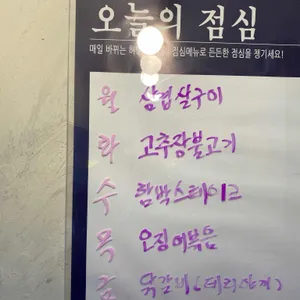 오늘의 점심
매일 바뀌는 점심메뉴로 든든한 점심을 챙기세요!
월 삼겹살구이
화 고추장불고기
수 함박스테이크
목 오징어볶음
금 떡갈비(데리야끼)